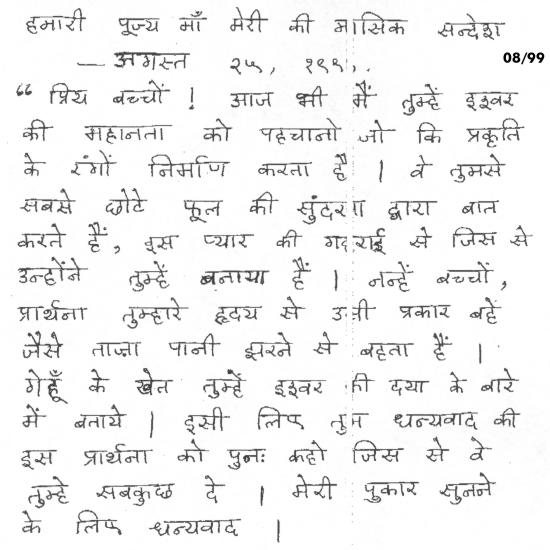 हमारी पूज्य माँ मेरी की मासिक सन्देश
— अगस्त २५, १९९९.
08/99
“ प्रिय बच्चों ! आज भी मैं तुम्हें इश्वर
की महानता को पहचानो जो कि प्रकृति
के रंगों निर्माण करता है | वे तुमसे
सबसे छोटे फूल की सुंदरता द्वारा बात
करते हैं, इस प्यार की गहराई से जिस से
उन्होंने तुम्हें बनाया हैं | नन्हें बच्चों,
प्रार्थना तुम्हारे हृदय से उसी प्रकार बहें
जैसे ताज़ा पानी झरने से बहता हैं |
गेहूँ के खेत तुम्हें इश्वर की दया के बारे
में बताये | इसी लिए तुम धन्यवाद की
इस प्रार्थना को पुनः कहो जिस से वे
तुम्हे सबकुछ दे | मेरी पुकार सुनने
के लिए धन्यवाद |